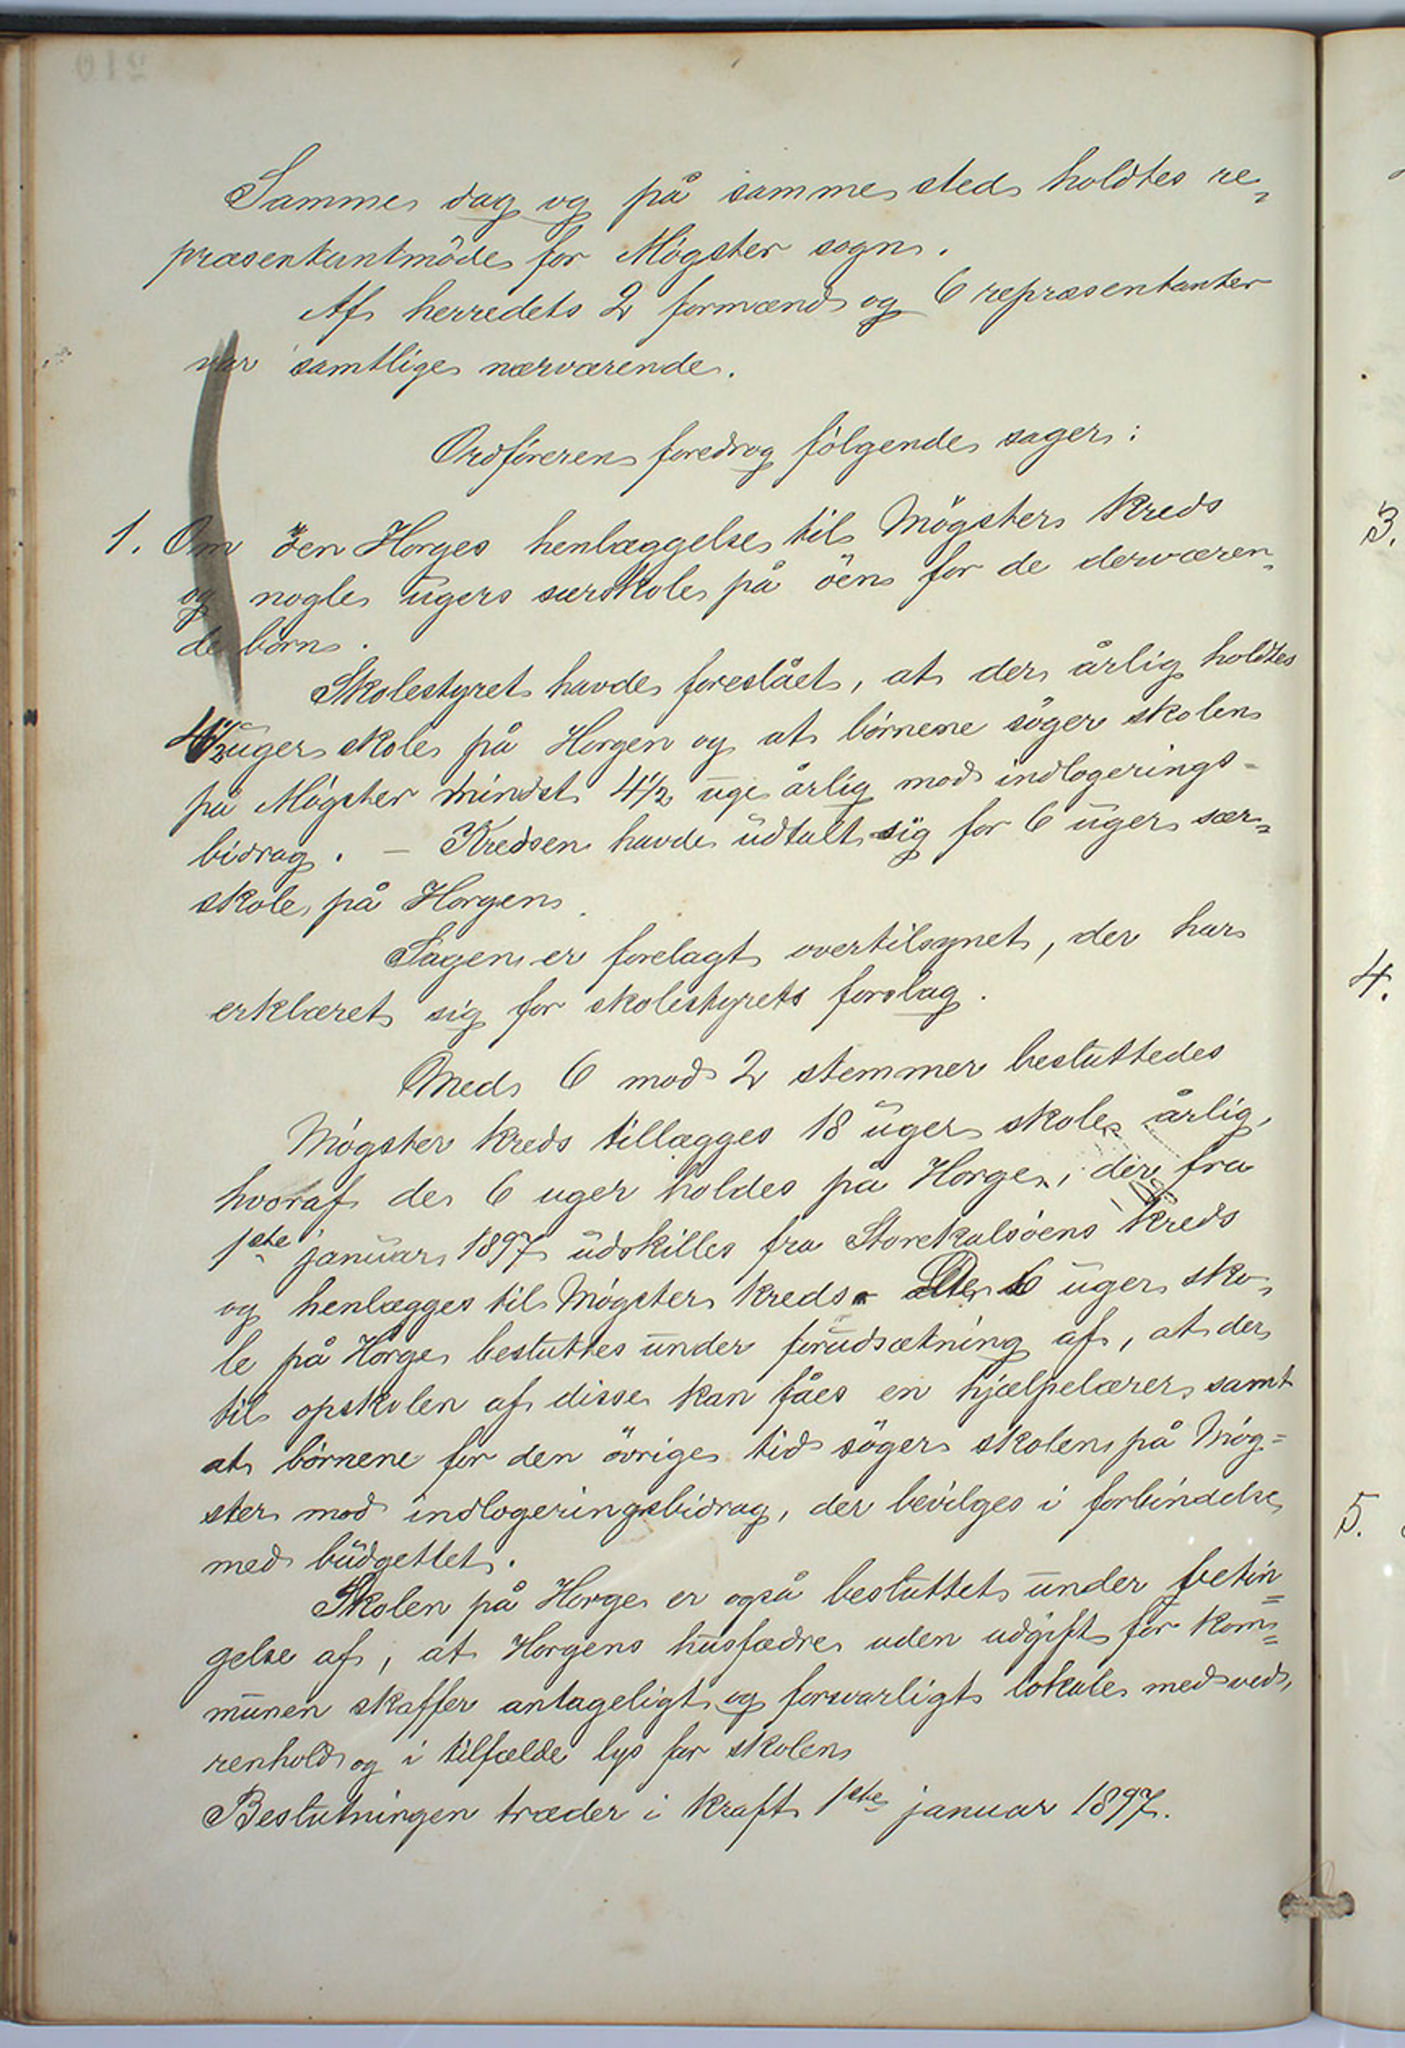 Samme dag og på samme sted holdtes re-
præsentantmöde for Møgster sogn.
Af herredets 2 formænd og 6 repræsentanter
var samtlige nærværende.
Ordföreren foredrog fölgende sager:
1. Om öen Horges henlæggelse til Møgster kreds
og nogle ugers særskole på öen for de derværen-
de börn.
Skolestyret havde foreslået, at der årlig holdtes
4 1/2 uger skole på Horgen og at börnene söger skolen
på Møgster mindst 4 1/2 uge årlig mod indlogerings-
bidrag. - Kredsen havde udtalt sig for 6 uger sær-
skole på Horgen.
Sagen er forelagt overtilsynet, der har
erklæret sig for skolestyrets forslag.
Med 6 mod 2 stemmer besluttedes
Møgster kreds tillægges 18 uger skole årlig,
hvoraf de 6 uger holdes på Horge, der fra
1ste januar 1897 udskilles fra Storekalsöens kreds
og henlægges til Møgster kreds - De 6 uger sko-
le på Horge besluttes under forudsætning af, at der
til opskolen af disse kan fåes en hjælpelærer samt
at börnene for den övrige tid söger skolen på Møg=
ster mod indlogeringsbidrag, der bevilges i forbindelse
med budgettet.
Skolen på Horge er også besluttet under betin=
gelse af, at Horgens husfædre uden udgift for kom=
munen skaffer antageligt og forsvarligt lokale med ved,
renhold og i tilfælde lys for skolen
Beslutningen træder i kraft 1ste januar 1897.
3.
4.
5.
210